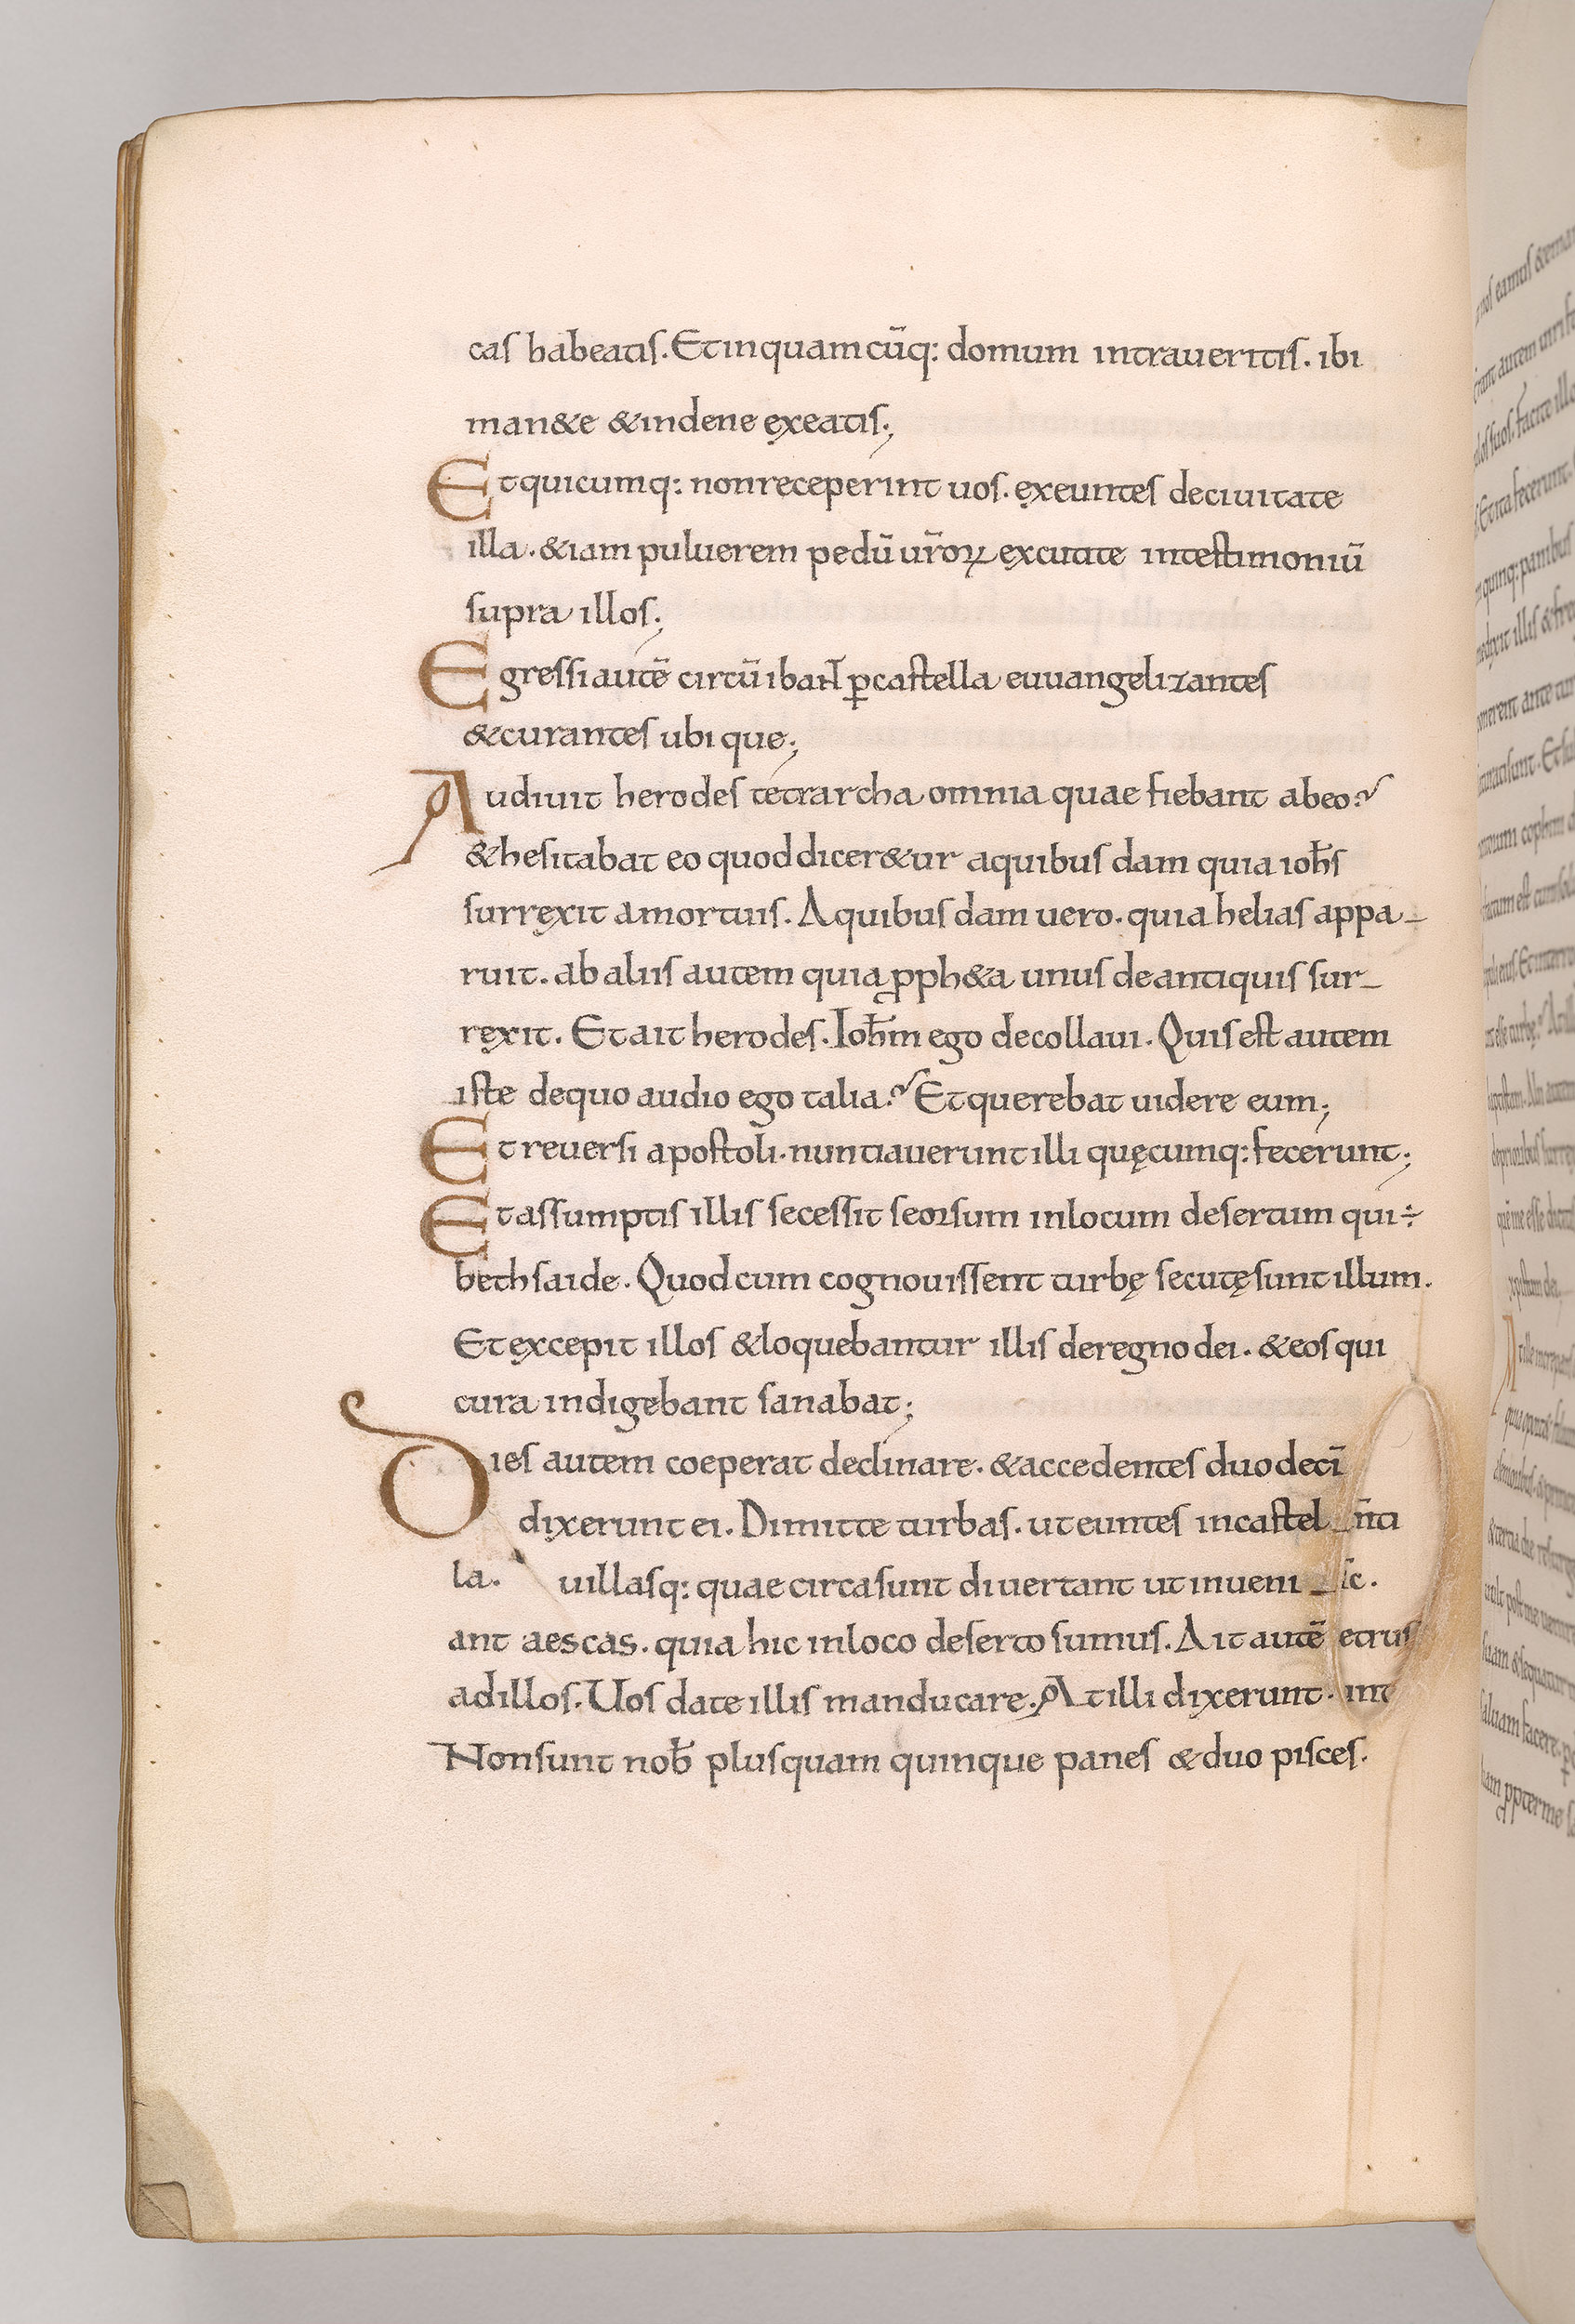 cas habeatis. Et in quamcūq: domum intraveritis. ibi
man&e & inde ne exeatis;
Et quicumq: non receperint uos. exeuntes de ciuitate
illa. & iam puluerem pedū ur̄oꝝ excutite in testimoniū
supra illos;
Egressi autē circūiban̄t ꝑ castella euuangelizantes
& curantes ubique;
Audiuit herodes tetrarcha omnia quae fiebant ab eo.
& hesitabat eo quod dicer&ur a quibusdam quia ioh̄s
surrexit a mortuis. A quibusdam uero. quia helias appa-
ruit. ab aliis autem quia ꝓph&a unus de antiquis sur-
rexit. Et ait herodes. Ioh̄m ego decollaui. Quis est autem
iste de quo audio ego talia? Et querebat uidere eum;
Et reuersi apostoli. nuntiaverunt illi quęcumq: fecerunt;
Et assumptis illis secessit seorsum in locum desertum qui ÷
bethsaide. Quod cum cognouissent turbę secutę sunt illum.
Et excepit illos & loquebantur illis de regno dei. & eos qui
cura indigebant sanabat;
Dies autem coeperat declinare. & accedentes duodecī
dixerunt ei. Dimitte turbas. ut euntes in castel-
la. uillasq: quae circa sunt diuertant ut inueni-
ant aescas. quia hic in loco deserto sumus. Ait autē
ad illos. Uos date illis manducare. At illi dixerunt.
Non sunt nob̄ plus quam quinque panes & duo pisces.